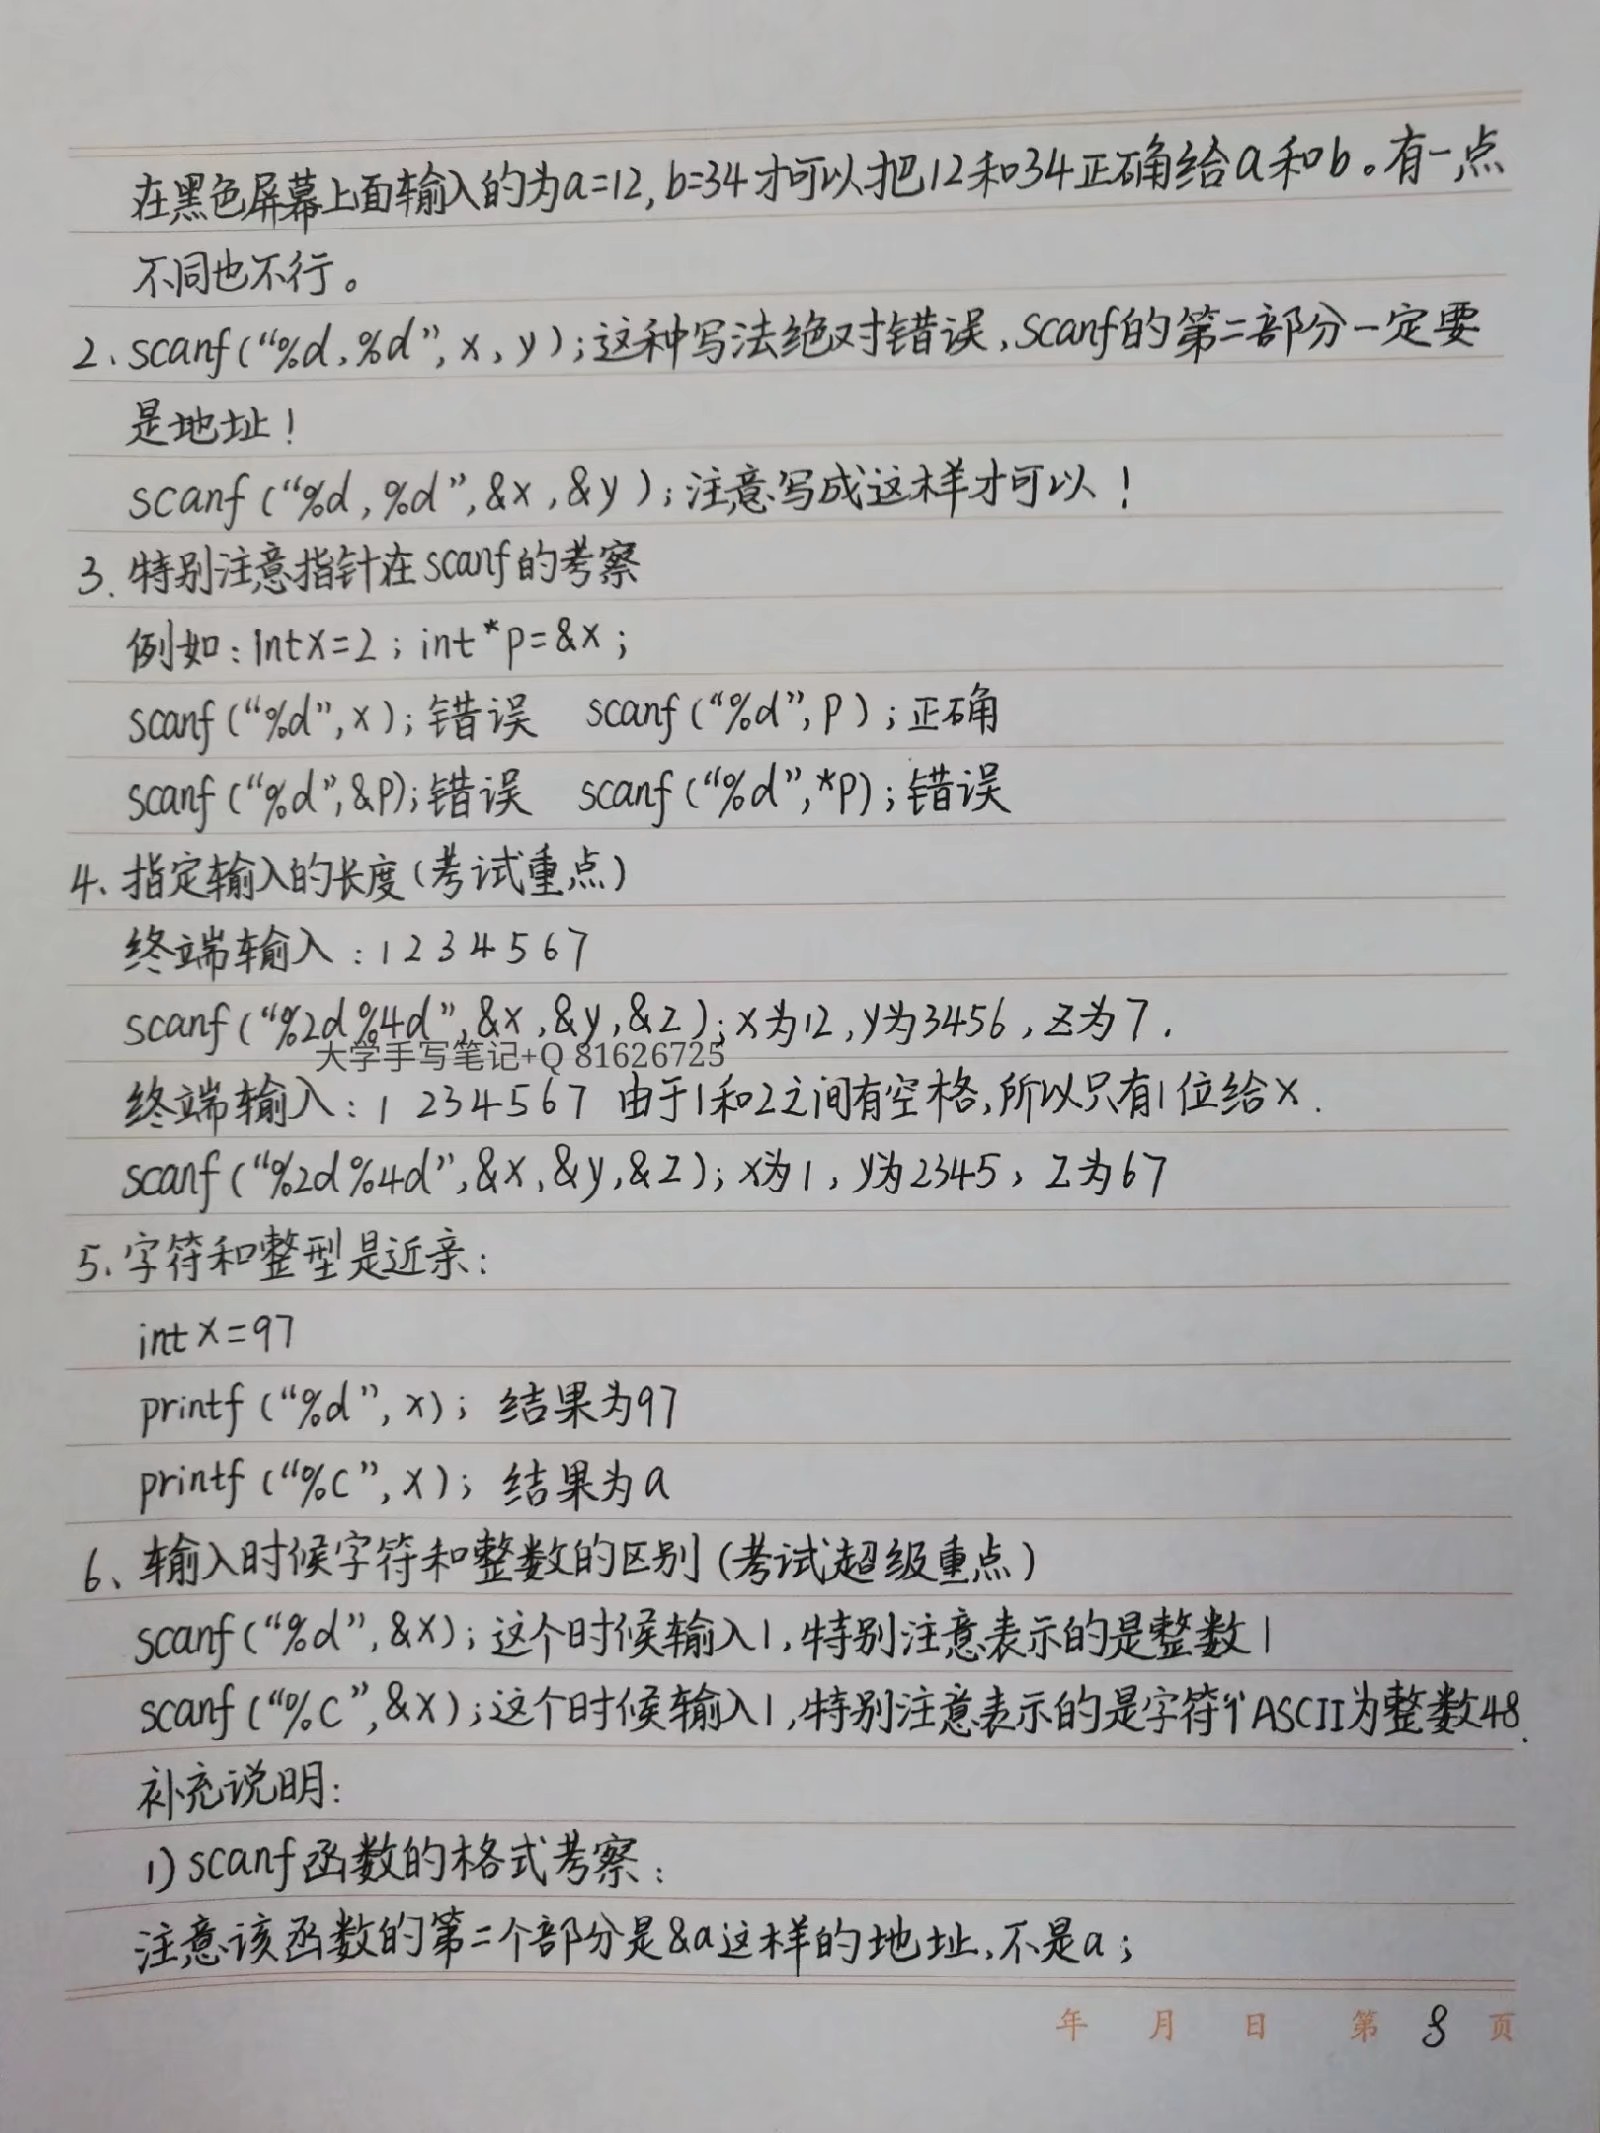 在黑色屏幕上面输入的为a=12,b=34才可以把12和34正确给a和b。有一点
不同也不行。
2、scanf(“%d,%d”,x,y);这种写法绝对错误,scanf的第二部分一定要
是地址!
scanf(“%d,%d”,&x,&y);注意写成这样才可以!
3.特别注意指针在scanf的考察
例如:intx=2;int*p=&x;
scanf(“%d”,x);错误 scanf(“%d”,p);正确
scanf(“%d”,&p);错误 scanf(“%d”,*p);错误
4、指定输入的长度(考试重点)
终端输入:1234567
scanf(“%2d%4d”,&x,&y,&z);x为12,y为3456,z为7.
大学手写笔记+Q 81626725
终端输入:1 234567 由于1和2之间有空格,所以只有1位给x.
scanf(“%2d%4d”,&x,&y,&z);x为1,y为2345,z为67
5.字符和整型是近亲:
int x=97
printf(“%d”,x);结果为97
printf(“%c”,x);结果为a
6、输入时候字符和整数的区别(考试超级重点)
scanf(“%d”,&x);这个时候输入1,特别注意表示的是整数1
scanf(“%c”,&x);这个时候输入1,特别注意表示的是字符‘1’ASCII为整数48.
补充说明:
1)scanf函数的格式考察:
注意该函数的第二个部分是&a这样的地址,不是a;
年 月 日 第 8 页